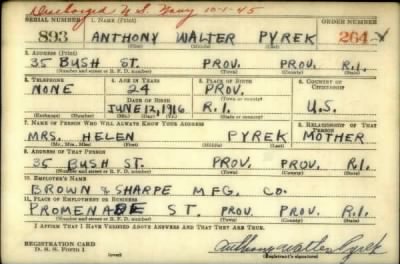 Discharged U.S. Navy 10-1-45
SERIAL NUMBER 1. NAME (Print) ORDER NUMBER
893 ANTHONY WALTER PYREK 264
(First) (Middle) (Last)
2. ADDRESS (Print)
35 BUSH ST. PROV. PROV. R.I.
(Number and street or R. F. D. number) (Town) (County) (State)
3. TELEPHONE 4. AGE IN YEARS 5. PLACE OF BIRTH 6. COUNTRY OF CITIZENSHIP
NONE 24 PROV.
DATE OF BIRTH (Town or county)
JUNE 12, 1916 R.I. U.S.
(Exchange) (Number) (Mo.) (Day) (Yr.) (State or country)
7. NAME OF PERSON WHO WILL ALWAYS KNOW YOUR ADDRESS 8. RELATIONSHIP OF THAT PERSON
MRS. HELEN PYREK MOTHER
(Mr., Mrs., Miss) (First) (Middle) (Last)
9. ADDRESS OF THAT PERSON
35 BUSH ST. PROV. PROV. R.I.
(Number and street or R. F. D. number) (Town) (County) (State)
10. EMPLOYER'S NAME
BROWN & SHARPE MFG. CO.
11. PLACE OF EMPLOYMENT OR BUSINESS
PROMENADE ST. PROV. PROV. R.I.
(Number and street or R. F. D. number) (Town) (County) (State)
I AFFIRM THAT I HAVE VERIFIED ABOVE ANSWERS AND THAT THEY ARE TRUE.
REGISTRATION CARD
D. S. S. Form 1 (over) Anthony Walter Pyrek
(Registrant's signature)